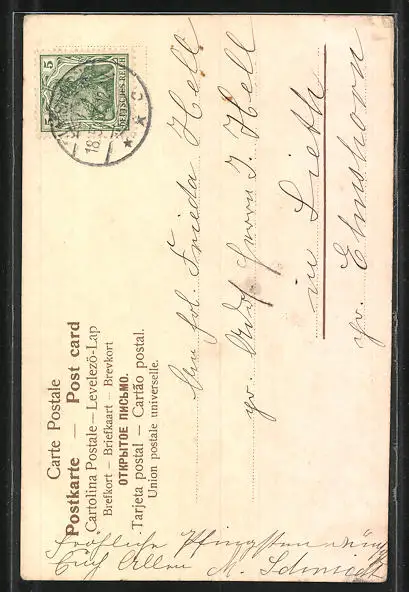 Carte Postale
Postkarte — Post card
Cartolina Postale—Levelező-Lap
Brefkort — Briefkaart — Brevkort
ОТКРЫТОЕ ПИСЬМО.
Tarjeta postal — Cartão postal.
Union postale universelle.
5 DEUTSCHES REICH 5
18
C
Frieda Hell
pr. Adr. Herrn J. Hell
in Lieth
pr. Elmshorn
Fröhliche Pfingsten wünscht
Euch Allen M. Schmidt